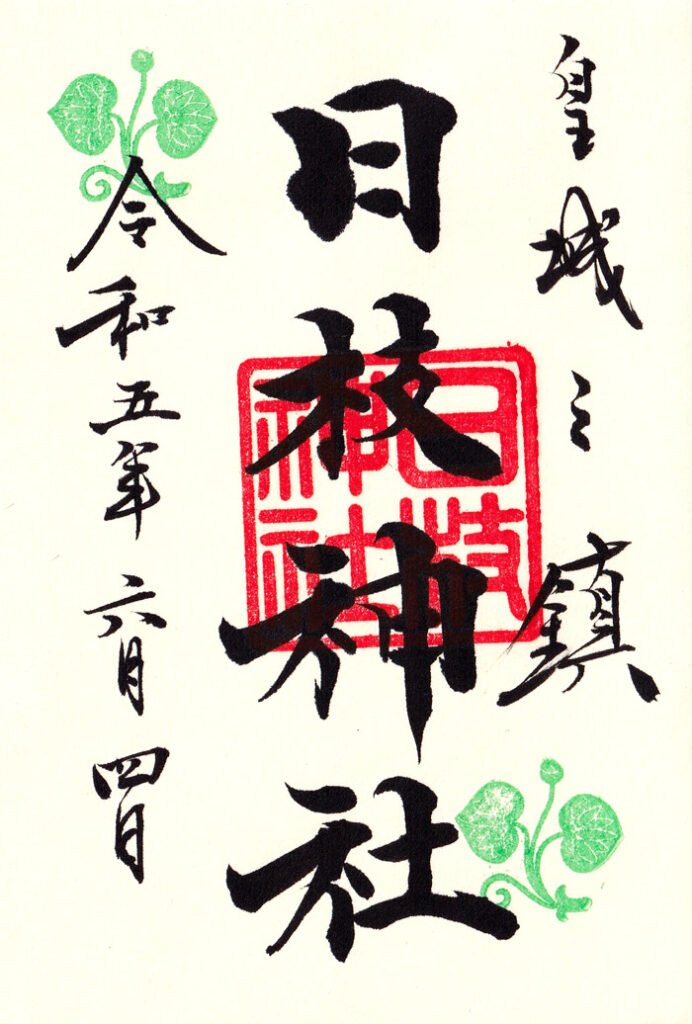 皇城之鎮
日枝神社
日枝神社
令和五年六月四日